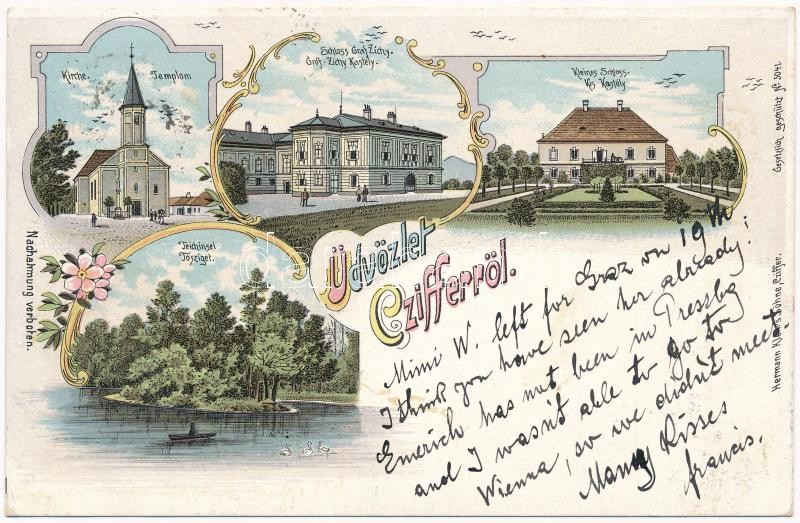 Kirche. Templom
Schloss Graf Zichy.
Gróf Zichy Kastély.
Kleines Schloss.
Kis Kastély
Gesetzlich geschützt № 5041.
Nachahmung verboten.
Teichinsel
Tósziget.
Üdvözlet
Czifferröl.
Mimi W. left for Graz on 19th
I think you have seen her already!
Emerich has not been in Pressbg
and I wasn't able to go to
Wienna, so we didn't meet.
Many Kisses
francis.
Hermann Klein's Söhne, Cziffer.